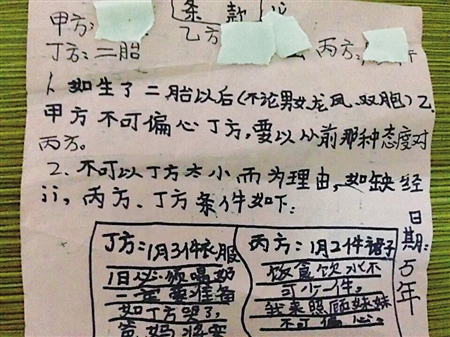 条款
甲方:
乙方
丙方:
丁方:二胎
1、如生了二胎以后(不论男女龙凤、双胞)乙
甲方不可偏心丁方,要以从前那种态度对
丙方。
2、不可以丁方太小而为理由,如缺经
济,丙方、丁方条件如下:
日期:5年
丁方:1月3件衣服
1日必须喝奶
一定要准备
如丁方哭了,
爸妈将要
丙方:1月2件裙子
饭食饮水不
可少一件。
我来照顾妹妹
不可偏心。